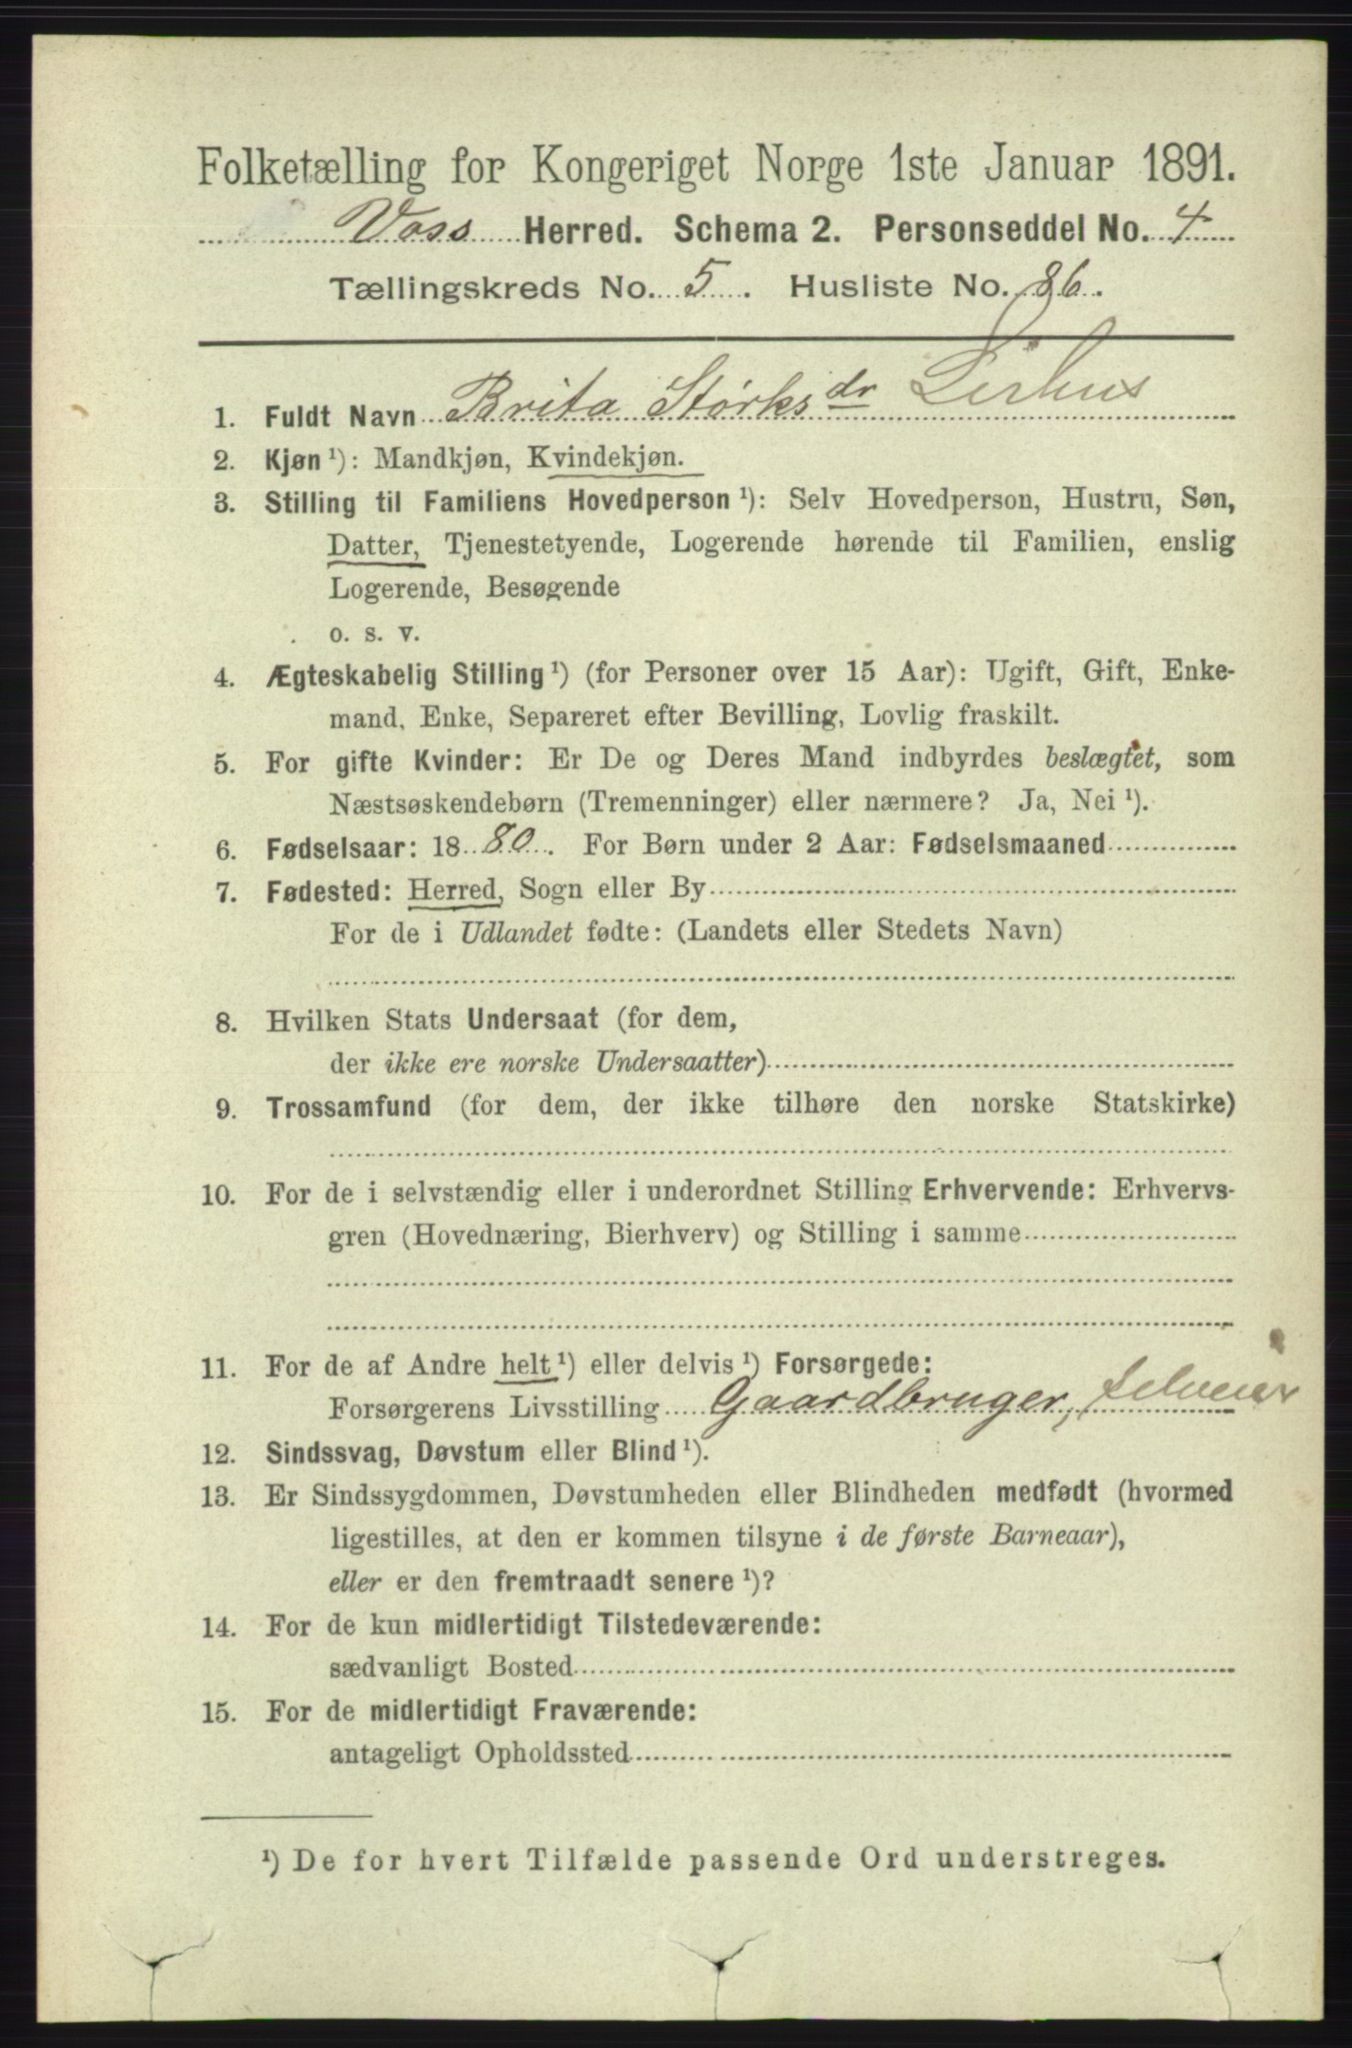 Folketælling for Kongeriget Norge 1ste Januar 1891.
Voss Herred. Schema 2. Personseddel No. 4
Tællingskreds No. 5. Husliste No. 86.
1. Fuldt Navn Brita Størksdr Lirhus
2. Kjøn ¹): Mandkjøn, Kvindekjøn.
3. Stilling til Familiens Hovedperson ¹): Selv Hovedperson, Hustru, Søn,
Datter, Tjenestetyende, Logerende hørende til Familien, enslig
Logerende, Besøgende
o. s. v.
4. Ægteskabelig Stilling ¹) (for Personer over 15 Aar): Ugift, Gift, Enke-
mand, Enke, Separeret efter Bevilling, Lovlig fraskilt.
5. For gifte Kvinder: Er De og Deres Mand indbyrdes beslægtet, som
Næstsøskendebørn (Tremenninger) eller nærmere? Ja, Nei ¹).
6. Fødselsaar: 1880. For Børn under 2 Aar: Fødselsmaaned
7. Fødested: Herred, Sogn eller By
For de i Udlandet fødte: (Landets eller Stedets Navn)
8. Hvilken Stats Undersaat (for dem,
der ikke ere norske Undersaatter)
9. Trossamfund (for dem, der ikke tilhøre den norske Statskirke)
10. For de i selvstændig eller i underordnet Stilling Erhvervende: Erhvervs-
gren (Hovednæring, Bierhverv) og Stilling i samme
11. For de af Andre helt ¹) eller delvis ¹) Forsørgede:
Forsørgerens Livsstilling Gaardbruger, selveier
12. Sindssvag, Døvstum eller Blind ¹).
13. Er Sindssygdommen, Døvstumheden eller Blindheden medfødt (hvormed
ligestilles, at den er kommen tilsyne i de første Barneaar),
eller er den fremtraadt senere ¹)?
14. For de kun midlertidigt Tilstedeværende:
sædvanligt Bosted
15. For de midlertidigt Fraværende:
antageligt Opholdssted
¹) De for hvert Tilfælde passende Ord understreges.